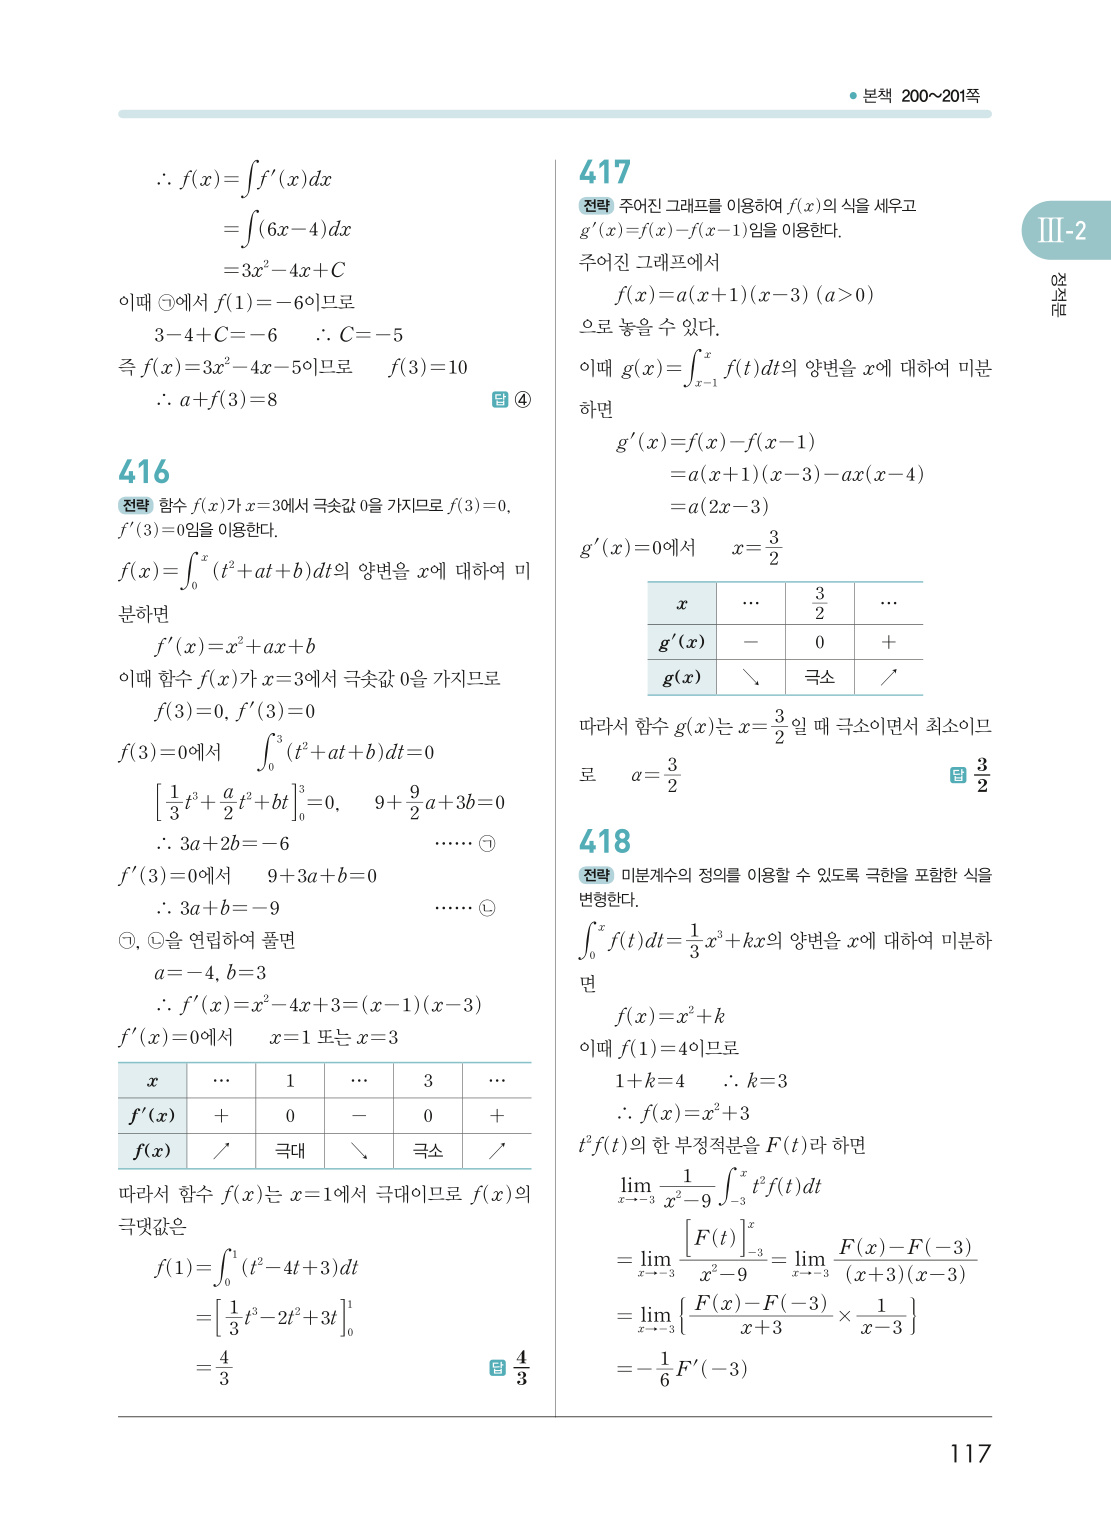 • 본책 200~201쪽
∴ f(x)=∫f′(x)dx
=∫(6x-4)dx
=3x²-4x+C
이때 ㉠에서 f(1)=-6이므로
3-4+C=-6 ∴ C=-5
즉 f(x)=3x²-4x-5이므로 f(3)=10
∴ a+f(3)=8 답 ④
416
전략 함수 f(x)가 x=3에서 극솟값 0을 가지므로 f(3)=0,
f′(3)=0임을 이용한다.
f(x)=∫₀ˣ(t²+at+b)dt의 양변을 x에 대하여 미
분하면
f′(x)=x²+ax+b
이때 함수 f(x)가 x=3에서 극솟값 0을 가지므로
f(3)=0, f′(3)=0
f(3)=0에서 ∫₀³(t²+at+b)dt=0
[1/3 t³+a/2 t²+bt]₀³=0, 9+9/2 a+3b=0
∴ 3a+2b=-6 …… ㉠
f′(3)=0에서 9+3a+b=0
∴ 3a+b=-9 …… ㉡
㉠, ㉡을 연립하여 풀면
a=-4, b=3
∴ f′(x)=x²-4x+3=(x-1)(x-3)
f′(x)=0에서 x=1 또는 x=3
x … 1 … 3 …
f′(x) + 0 - 0 +
f(x) ↗ 극대 ↘ 극소 ↗
따라서 함수 f(x)는 x=1에서 극대이므로 f(x)의
극댓값은
f(1)=∫₀¹(t²-4t+3)dt
=[1/3 t³-2t²+3t]₀¹
=4/3 답 4/3
417
전략 주어진 그래프를 이용하여 f(x)의 식을 세우고
g′(x)=f(x)-f(x-1)임을 이용한다.
주어진 그래프에서
f(x)=a(x+1)(x-3) (a>0)
으로 놓을 수 있다.
이때 g(x)=∫ₓ₋₁ˣ f(t)dt의 양변을 x에 대하여 미분
하면
g′(x)=f(x)-f(x-1)
=a(x+1)(x-3)-ax(x-4)
=a(2x-3)
g′(x)=0에서 x=3/2
x … 3/2 …
g′(x) - 0 +
g(x) ↘ 극소 ↗
따라서 함수 g(x)는 x=3/2일 때 극소이면서 최소이므
로 α=3/2 답 3/2
418
전략 미분계수의 정의를 이용할 수 있도록 극한을 포함한 식을
변형한다.
∫₀ˣ f(t)dt=1/3 x³+kx의 양변을 x에 대하여 미분하
면
f(x)=x²+k
이때 f(1)=4이므로
1+k=4 ∴ k=3
∴ f(x)=x²+3
t²f(t)의 한 부정적분을 F(t)라 하면
lim x→-3 1/(x²-9) ∫₋₃ˣ t²f(t)dt
=lim x→-3 [F(t)]₋₃ˣ/(x²-9)=lim x→-3 {F(x)-F(-3)}/{(x+3)(x-3)}
=lim x→-3 {(F(x)-F(-3))/(x+3)×1/(x-3)}
=-1/6 F′(-3)
Ⅲ-2
정적분
117